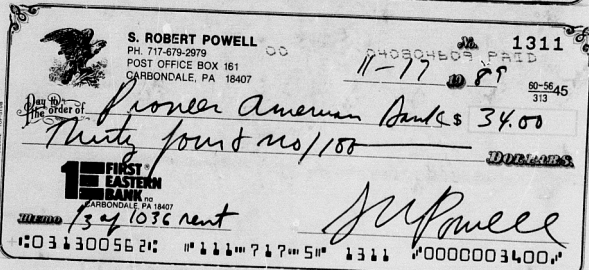 S. ROBERT POWELL
PH. 717-679-2979
POST OFFICE BOX 161
CARBONDALE, PA 18407
00
040804609 PAID
No. 1311
11-17 19 89
60-5645
313
Pay to the order of Pioneer American Bank $ 34.00
Thirty four & no/100 DOLLARS
1 FIRST EASTERN BANK na
CARBONDALE, PA 18407
MEMO 1/3 of 1036 rent
SRPowell
⑆031300562⑆ ⑈111⑉717⑉5⑈ 1311 ⑈0000003400⑈